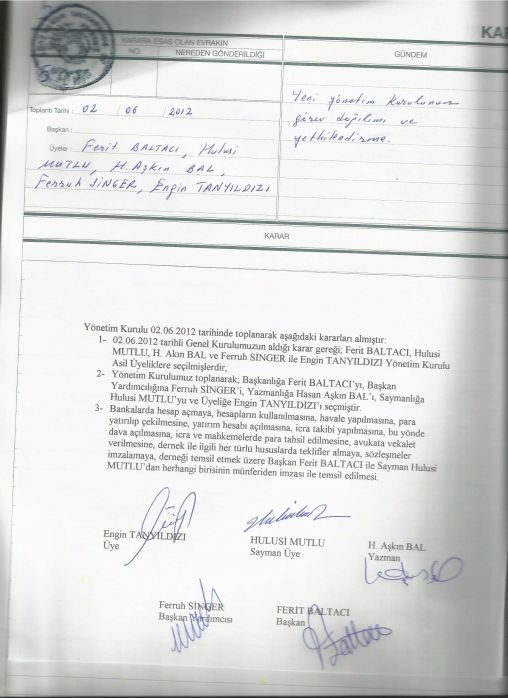 KA
KARARA ESAS OLAN EVRAKIN
NO. NEREDEN GÖNDERİLDİĞİ
GÜNDEM
Yeni yönetim kurulunun
görev dağılımı ve
yetkilendirme.
Toplantı Tarihi : 02 / 06 / 2012
Başkan :
Üyeler : Ferit BALTACI, Hulusi
MUTLU, H. Aşkın BAL,
Ferruh SİNGER, Engin TANYILDIZI
KARAR
Yönetim Kurulu 02.06.2012 tarihinde toplanarak aşağıdaki kararları almıştır:
1- 02.06.2012 tarihli Genel Kurulumuzun aldığı karar gereği; Ferit BALTACI, Hulusi
MUTLU, H. Akın BAL ve Ferruh SİNGER ile Engin TANYILDIZI Yönetim Kurulu
Asil Üyeliklere seçilmişlerdir,
2- Yönetim Kurulumuz toplanarak; Başkanlığa Ferit BALTACI'yı, Başkan
Yardımcılığına Ferruh SİNGER'i, Yazmanlığa Hasan Aşkın BAL'ı, Saymanlığa
Hulusi MUTLU'yu ve Üyeliğe Engin TANYILDIZI'ı seçmiştir.
3- Bankalarda hesap açmaya, hesapların kullanılmasına, havale yapılmasına, para
yatırılıp çekilmesine, yatırım hesabı açılmasına, icra takibi yapılmasına, bu yönde
dava açılmasına, icra ve mahkemelerde para tahsil edilmesine, avukata vekalet
verilmesine, dernek ile ilgili her türlü hususlarda teklifler almaya, sözleşmeler
imzalamaya, derneği temsil etmek üzere Başkan Ferit BALTACI ile Sayman Hulusi
MUTLU'dan herhangi birisinin münferiden imzası ile temsil edilmesi.
Engin TANYILDIZI
Üye
HULUSİ MUTLU
Sayman Üye
H. Aşkın BAL
Yazman
Ferruh SİNGER
Başkan Yardımcısı
FERİT BALTACI
Başkan